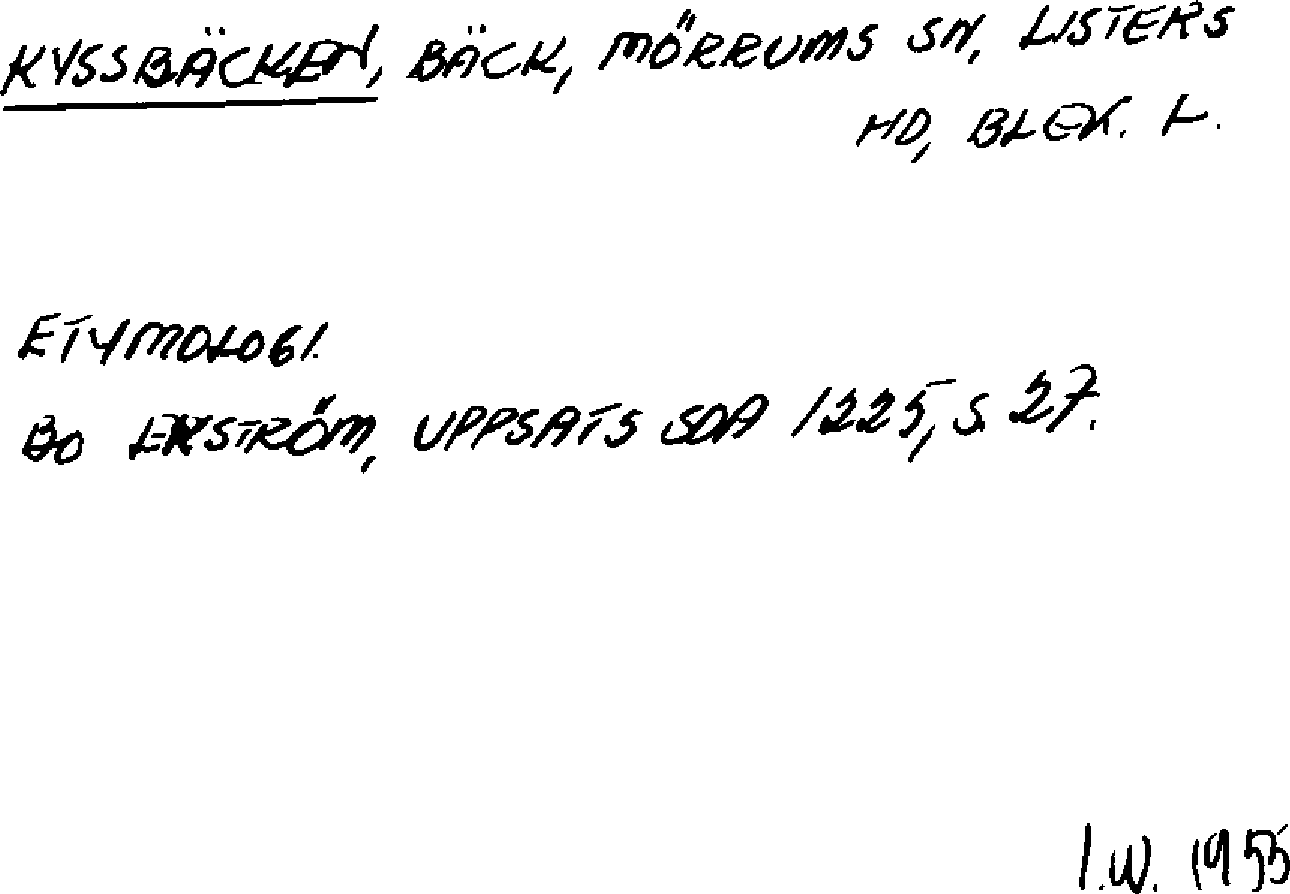 KYSSBÄCKEN, BÄCK, MÖRRUMS SN, LISTERS
HD, BLEK. L.
ETYMOLOGI.
BO EKSTRÖM, UPPSATS SDA 1225, S. 27.
I.W. 1955